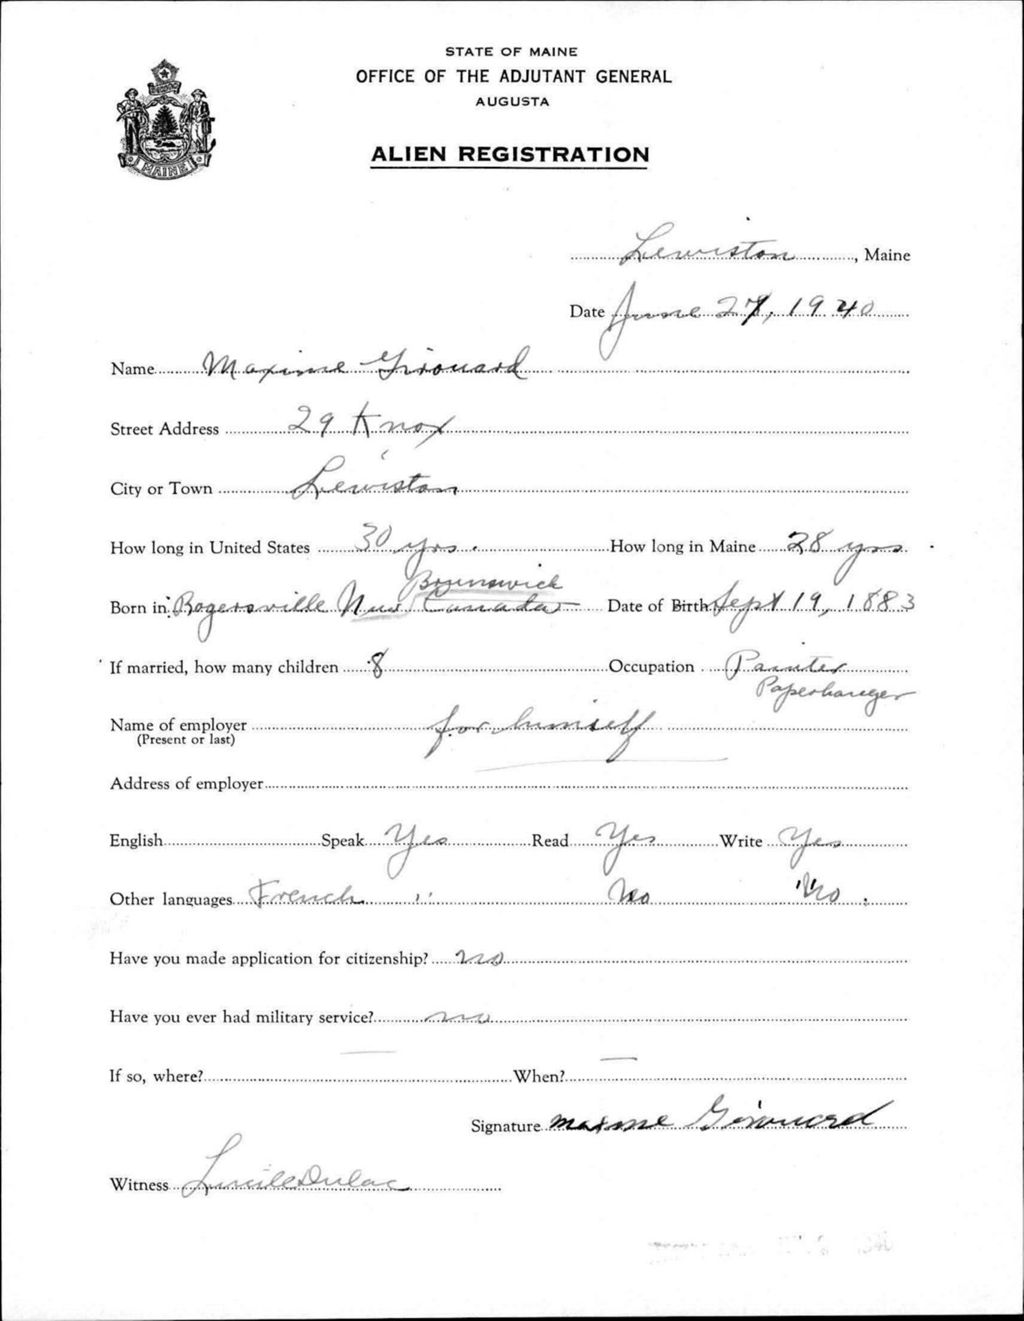 STATE OF MAINE
OFFICE OF THE ADJUTANT GENERAL
AUGUSTA
MAINE
ALIEN REGISTRATION
Lewiston, Maine
Date June 27, 1940
Name Maxime Girouard
Street Address 29 Knox
City or Town Lewiston
How long in United States 30 yrs. How long in Maine 28 yrs.
Brunswick
Born in Rogersville New Canada Date of Birth Sept 19, 1883
If married, how many children 8 Occupation Painter
Paperhanger
Name of employer for himself
(Present or last)
Address of employer
English Speak Yes Read Yes Write Yes
Other languages French " No No
Have you made application for citizenship? no
Have you ever had military service? no
If so, where? — When? —
Signature Maxime Girouard
Witness Lucille Dulac